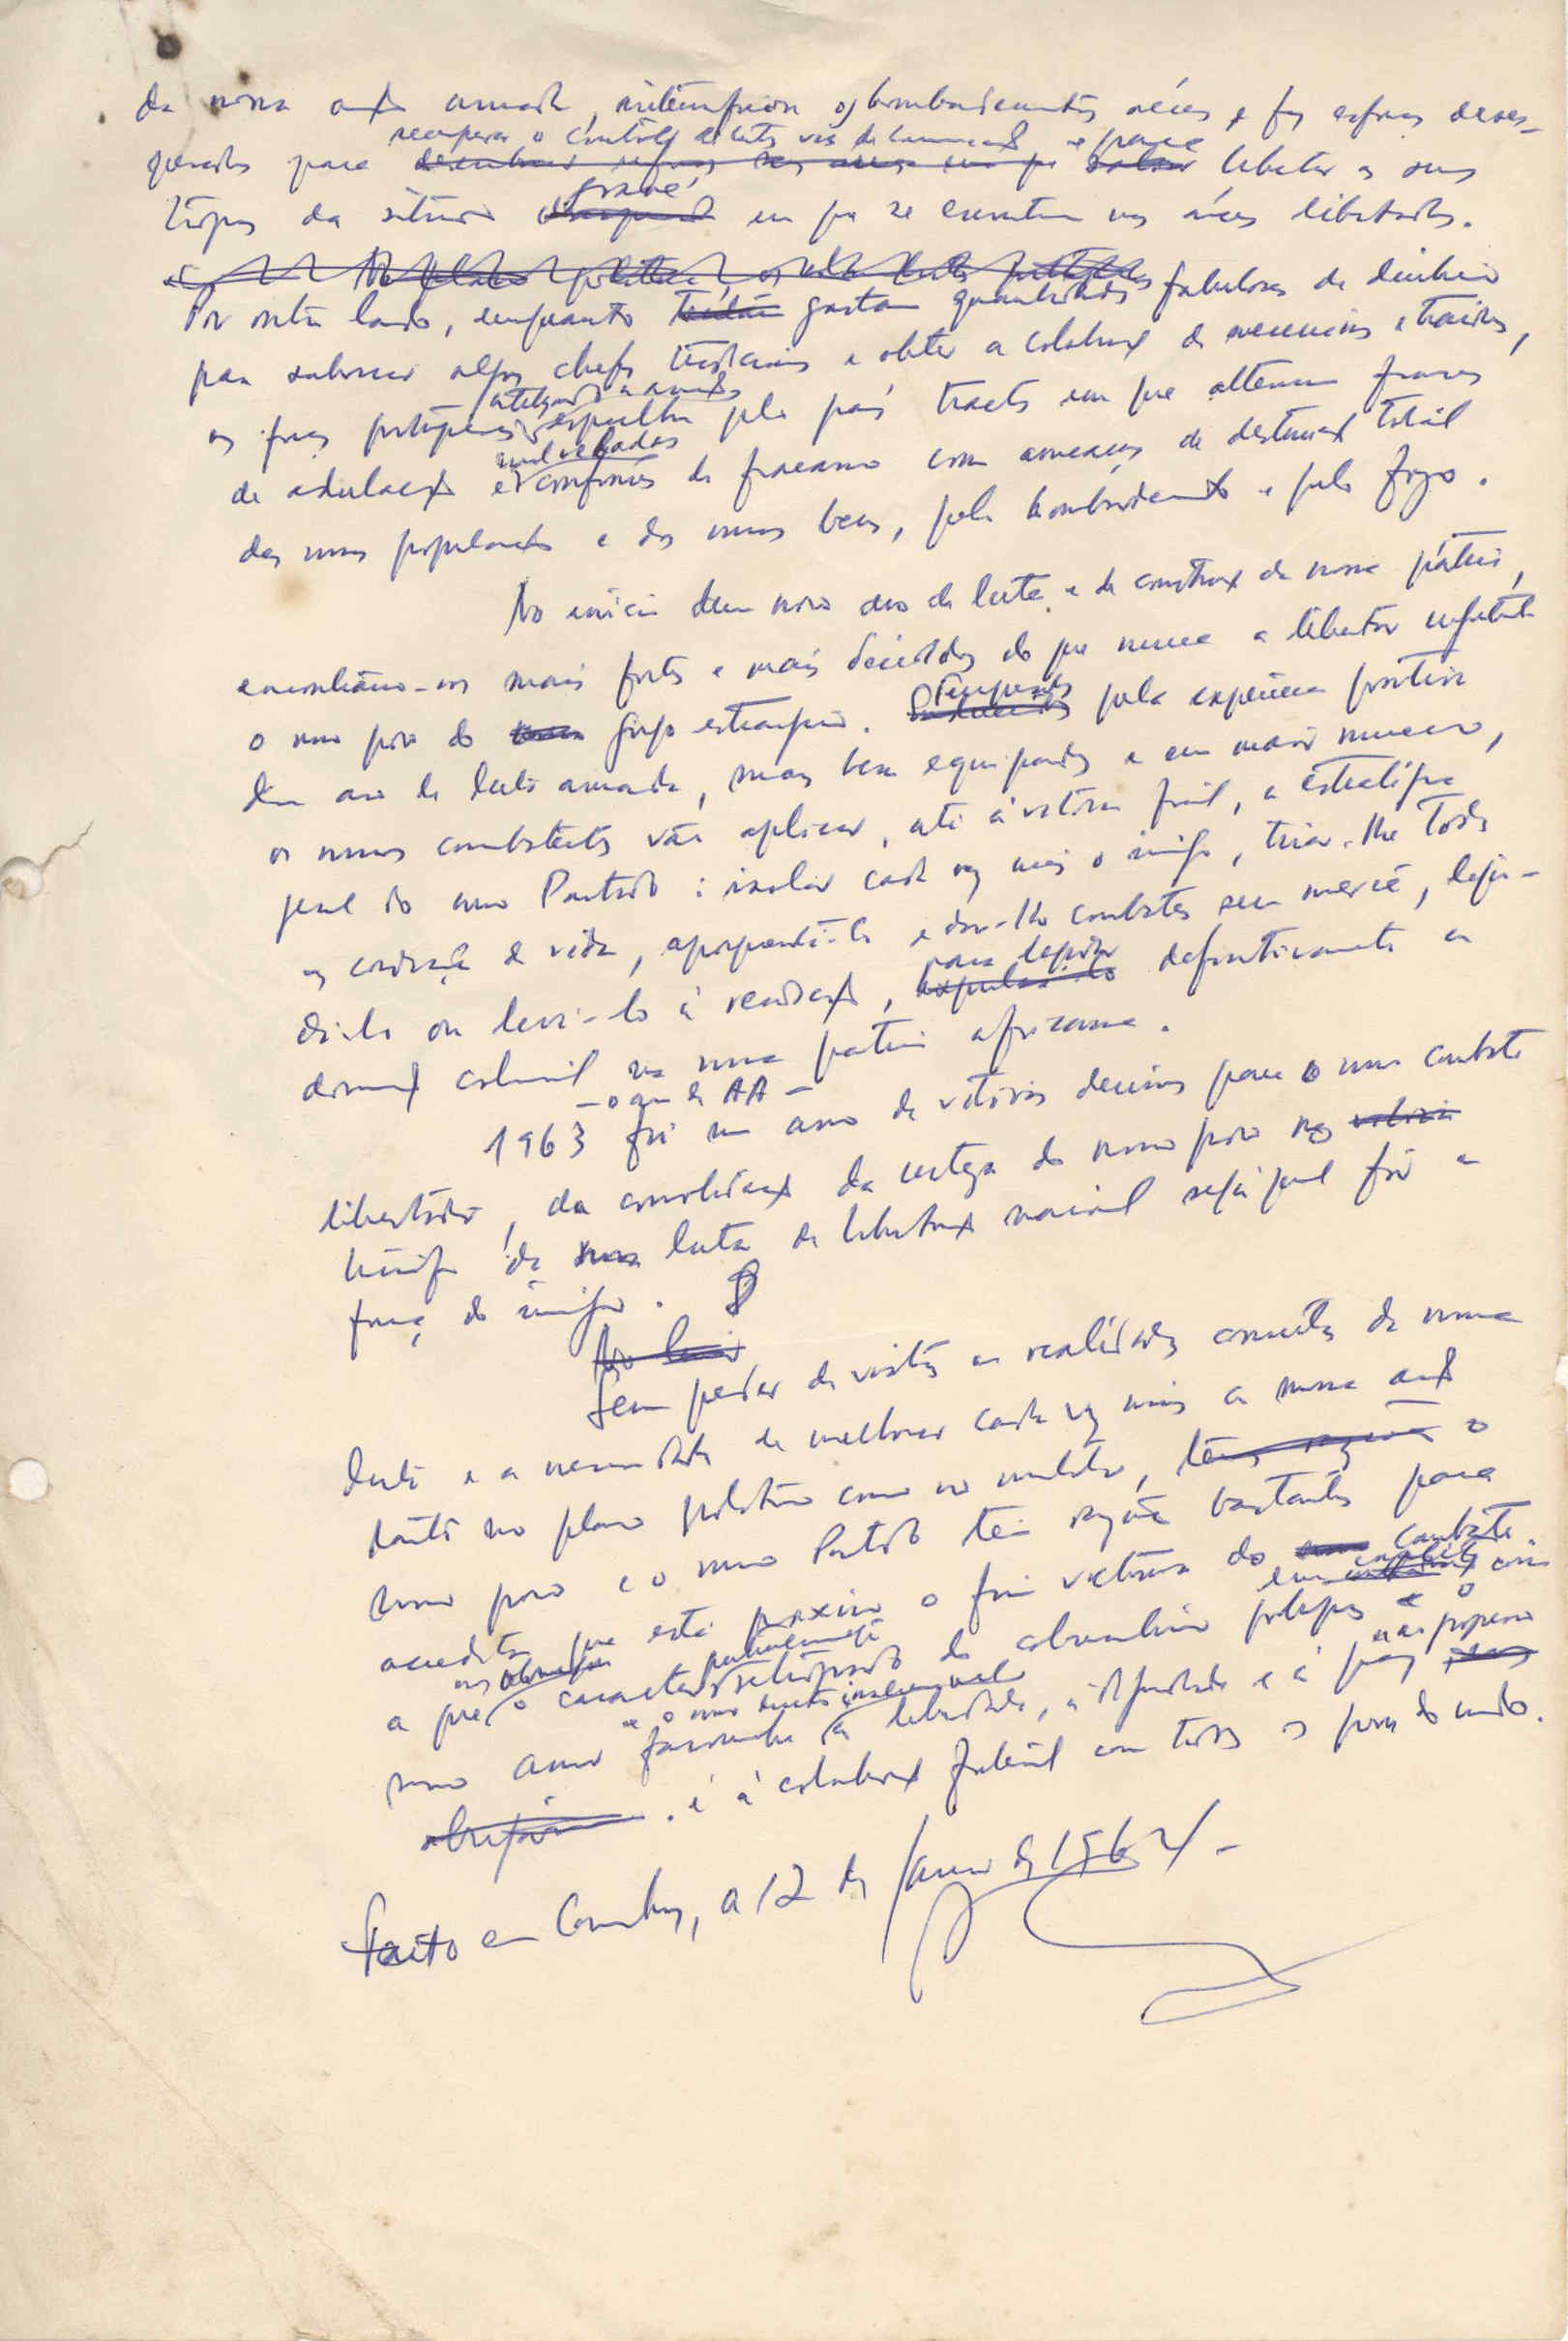 da nossa acção armada, intensificou os bombardeamentos aéreos e faz esforços deses-
perados para recuperar o contrôle de certas vias de comunicação e para libertar as suas
tropas da situação grave em que se encontram nas áreas libertadas.
Por outro lado, enquanto gastam quantidades fabulosas de dinheiro
para subornar alguns chefes tradicionais e obter a colaboração de mercenários e traidores,
as forças portuguesas espalham pelo país tracts em que alternam frases
de adulação e confissões veladas de fracasso com ameaças de destruição total
das nossas populações e dos nossos bens, pelo bombardeamento e pelo fogo.
No início dum novo ano de luta e de construção da nossa pátria,
encontramo-nos mais fortes e mais decididos do que nunca a libertar
o nosso povo do jugo estrangeiro. Temperados pela experiência positiva
dum ano de luta armada, mais bem equipados e em maior número,
os nossos combatentes vão aplicar, até à vitória final, a estratégia
geral do nosso Partido: isolar cada vez mais o inimigo, tirar-lhe todas
as condições de vida, e dar-lhe combates sem mercê, liqui-
dá-lo ou levá-lo à rendição, para liquidar definitivamente a
dominação colonial na nossa pátria africana.
– o ano de AA –
1963 foi um ano de vitórias decisivas para o nosso combate
libertador, da consolidação da certeza do nosso povo no
triunfo da luta de libertação nacional seja qual fôr a
força do inimigo.
Sem perder de vista as realidades concretas da nossa
luta e a necessidade de melhorar cada vez mais a nossa acção
tanto no plano político como no militar, o
nosso povo e o nosso Partido têm razões bastantes para
acreditar que está próximo o fim vitorioso do combate
a que nos o caracter retrógrado do colonialismo português e o
nosso amor à liberdade, à dignidade e à paz, ao progresso
e à colaboração fraternal com todos os povos do mundo.
Feito em Conakry, a 12 de Janeiro de 1964 –